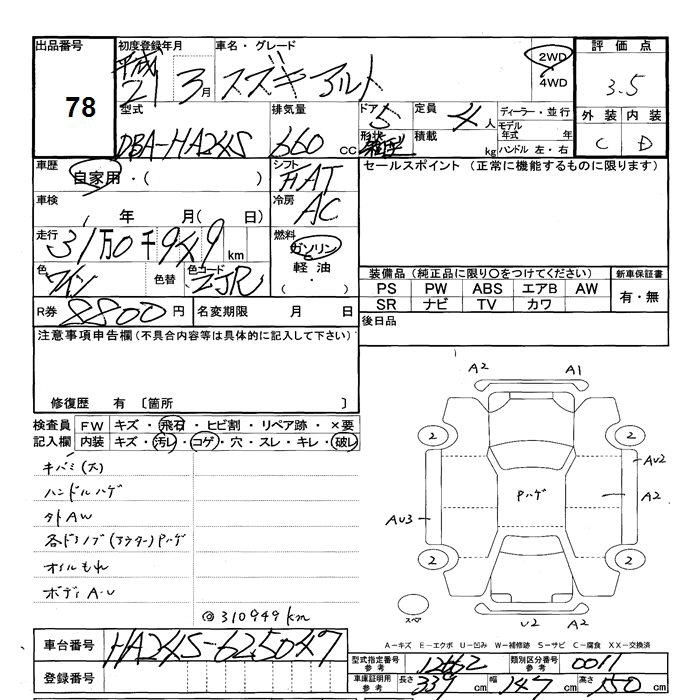 出品番号 初度登録年月 車名・グレード 評価点
78
平成 21 3月 スズキ アルト 2WD 4WD 3.5
型式 排気量 ドア 定員 ディーラー・並行 外装 内装
DBA-HA24S 660 cc 5 4人 モデル年式 年 C D
形状 積載 kg ハンドル 左・右
車歴 自家用・( ) シフト FAT セールスポイント (正常に機能するものに限ります)
車検 年 月( 日) 冷房 AC
走行 31万0千949km 燃料 ガソリン
軽油
( ・ )
色 ワイン 色替 色コード ZJR
装備品 (純正品に限り〇をつけてください) 新車保証書
PS PW ABS エアB AW 有・無
SR ナビ TV カワ
R券 8800円 名変期限 月 日 後日品
注意事項申告欄(不具合内容等は具体的に記入して下さい)
修復歴 有 〔箇所 〕
検査員 FW キズ・飛石・ヒビ割・リペア跡・×要
記入欄 内装 キズ・汚レ・コゲ・穴・スレ・キレ・破レ
キバミ(大)
ハンドルハゲ
外AW
各ドアノブ(アウター)Pハゲ
オイルもれ
ボディA-U
@310949km
A2 A1
2 2
AU2
Pハゲ A2
AU3
2 2
スペア
U2 A2
A-キズ E-エクボ U-凹み W-補修跡 S-サビ C-腐食 XX-交換済
車台番号 HA24S-625047
登録番号
型式指定番号 参考 12662 類別区分番号 参考 0011
車庫証明用 参考 長さ 339cm 幅 147cm 高さ 150cm